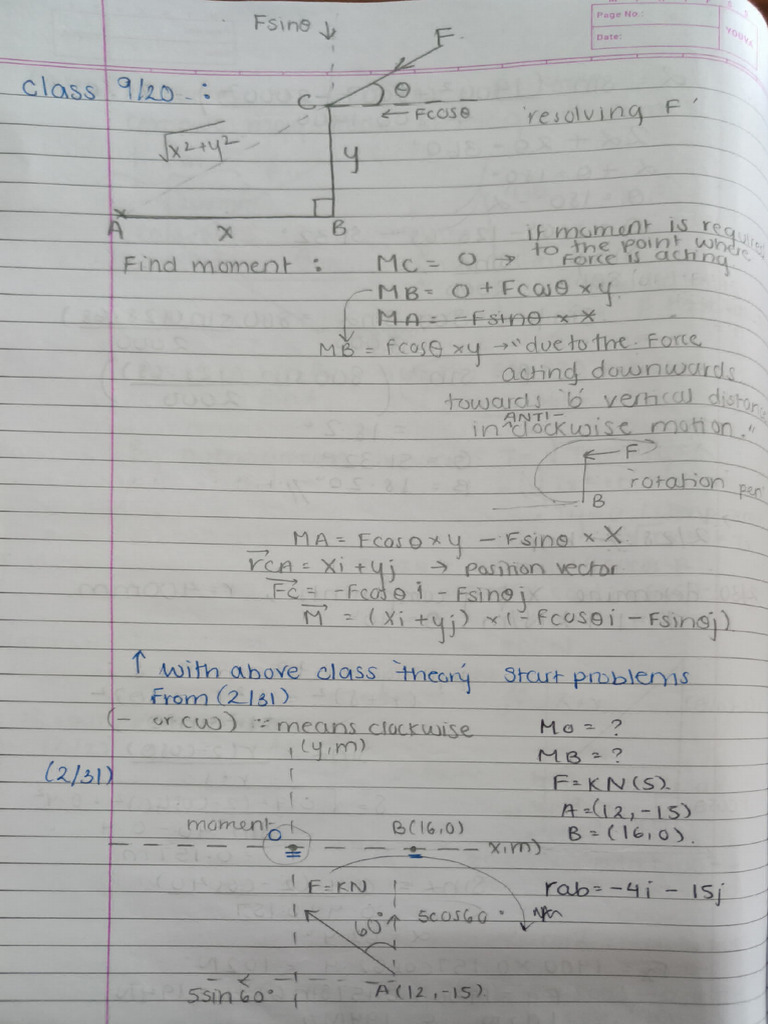 Page No.:
Date:
YOUVA
Fsinθ ↓
F
class 9/20 :
C
θ
← Fcosθ
resolving F'
√x²+y²
y
A
x
B
if moment is
to the point where
Find moment : Mc = 0 → Force is acting
MB = 0 + Fcosθ × y
MA = -Fsinθ × x
MB = Fcosθ × y → "due to the Force
acting downwards
towards 'b' vertical
ANTI-
in clockwise motion."
← F
rotation
B
MA = Fcosθ × y - Fsinθ × X
rCA = Xi + yj → position vector
Fc = -Fcosθ i - Fsinθj
M = (Xi + yj) × (-Fcosθi - Fsinθj)
↑ with above class theory start problems
From (2/31)
(- or cw) :- means clockwise
Mo = ?
(y,m)
MB = ?
(2/31)
F = KN(5).
A = (12, -15)
moment O
B(16,0)
B = (16,0).
x,m)
F=KN
rab = -4i - 15j
60°
5cos60°
5sin60°
A(12,-15)